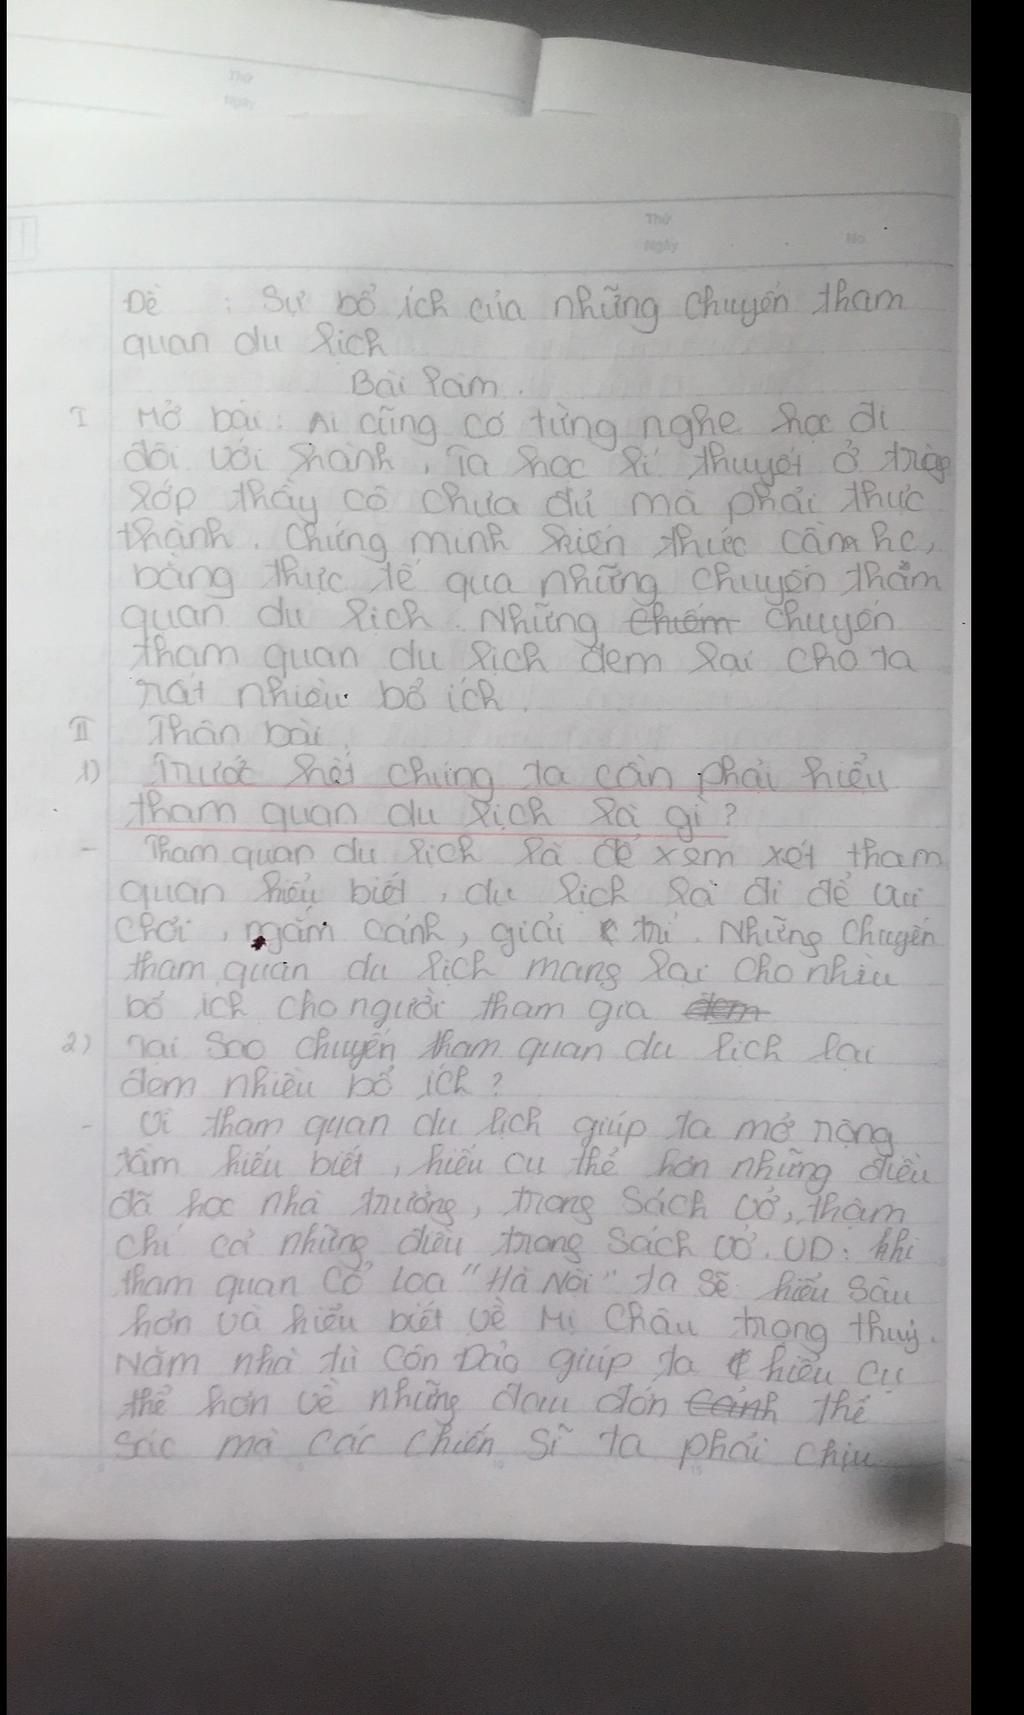 Thứ
Ngày
Thứ
Ngày
No.
Đề : Sự bổ ích của những chuyến tham
quan du lịch
Bài làm.
I Mở bài: Ai cũng có từng nghe học đi
đôi với hành, Ta học lí thuyết ở
lớp thầy cô chưa đủ mà phải thực
thành. Chứng minh kiến thức
bằng thực tế qua những chuyến thăm
quan du lịch. Những chuyến
tham quan du lịch đem lại cho ta
rất nhiều bổ ích.
II Thân bài.
1) Trước hết chúng ta cần phải hiểu
tham quan du lịch là gì?
- Tham quan du lịch là để xem xét tham
quan hiểu biết, du lịch là đi để vui
chơi, ngắm cảnh, giải trí. Những chuyến
tham quan du lịch mang lại cho nhiu
bổ ích cho người tham gia đem
2) Tại sao chuyến tham quan du lịch lại
đem nhiều bổ ích?
- Vì tham quan du lịch giúp ta mở rộng
tầm hiểu biết, hiểu cụ thể hơn những điều
đã học nhà trường, trong sách vở, thậm
chí cả những điều trong sách vở. VD: khi
tham quan Cổ Loa "Hà Nội" ta sẽ hiểu sâu
hơn và hiểu biết về Mị Châu trọng thuỷ.
Năm nhà tù Côn Đảo giúp ta hiểu cụ
thể hơn về những đau đớn cảnh thể
sác mà các chiến sĩ ta phải chịu